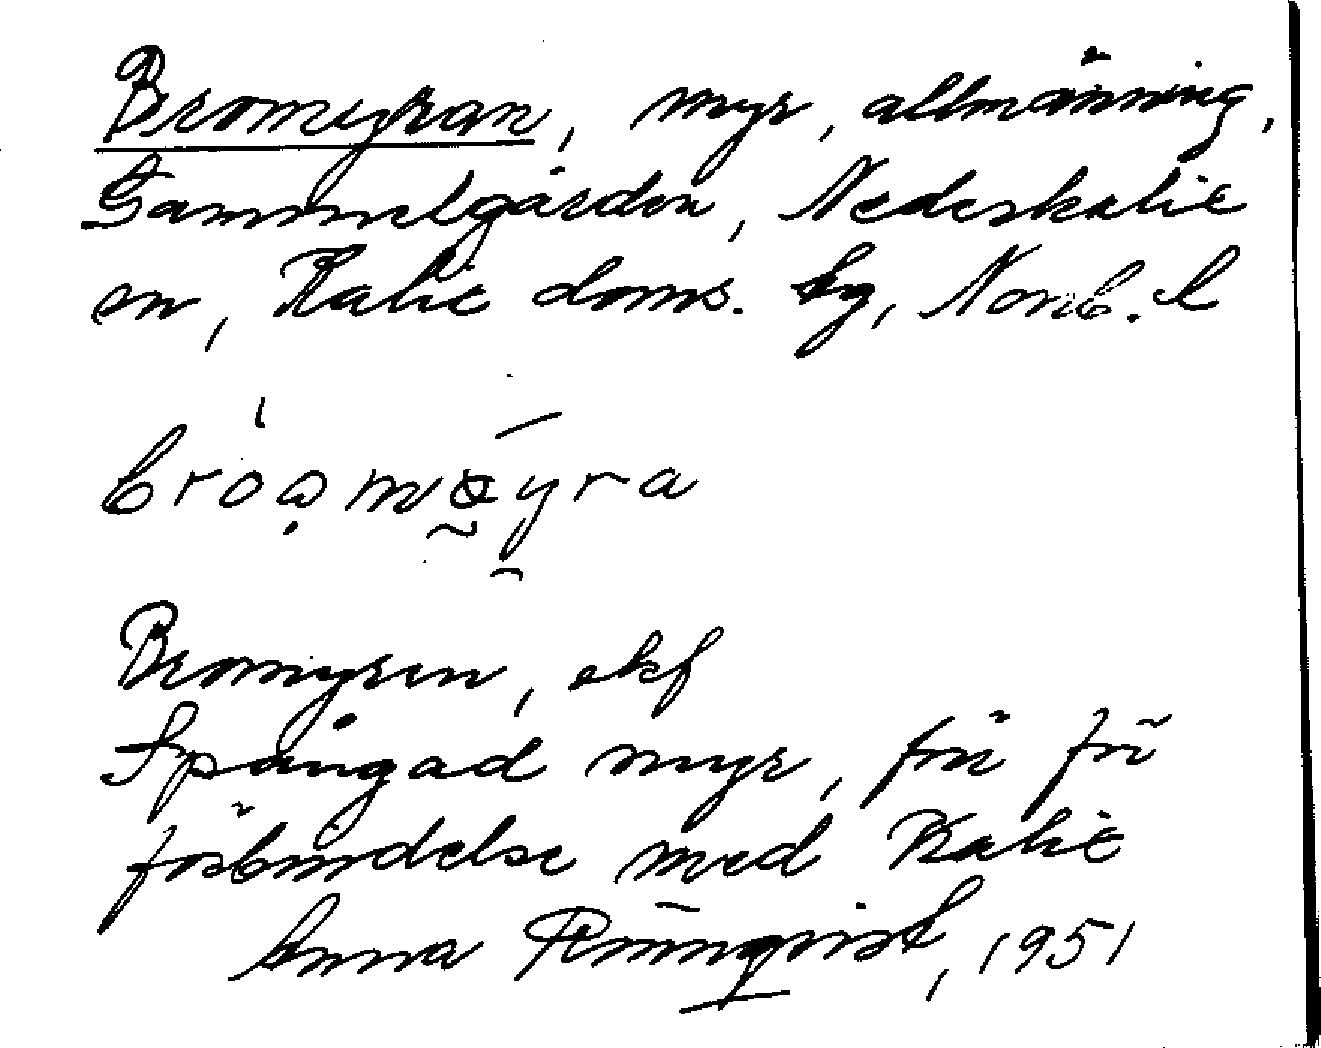 Bromyran, myr, allmänning,
Gammelgården, Nederkalix
sn, Kalix doms. hg, Norrb. l
Bromyren, ekf
Spångad myr, för
förbindelse med Kalix
Anna Rönnqvist, 1951